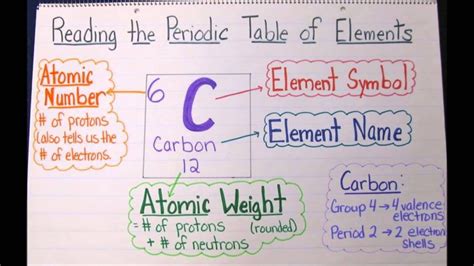 Reading the Periodic Table of Elements
Atomic
Number
# of protons
(also tells us the
# of electrons.
6
C
Carbon
12
Element Symbol
Element Name
Atomic Weight
= # of protons (rounded)
+ # of neutrons
Carbon:
Group 4 → 4 valence
electrons
Period 2 → 2 electron
shells